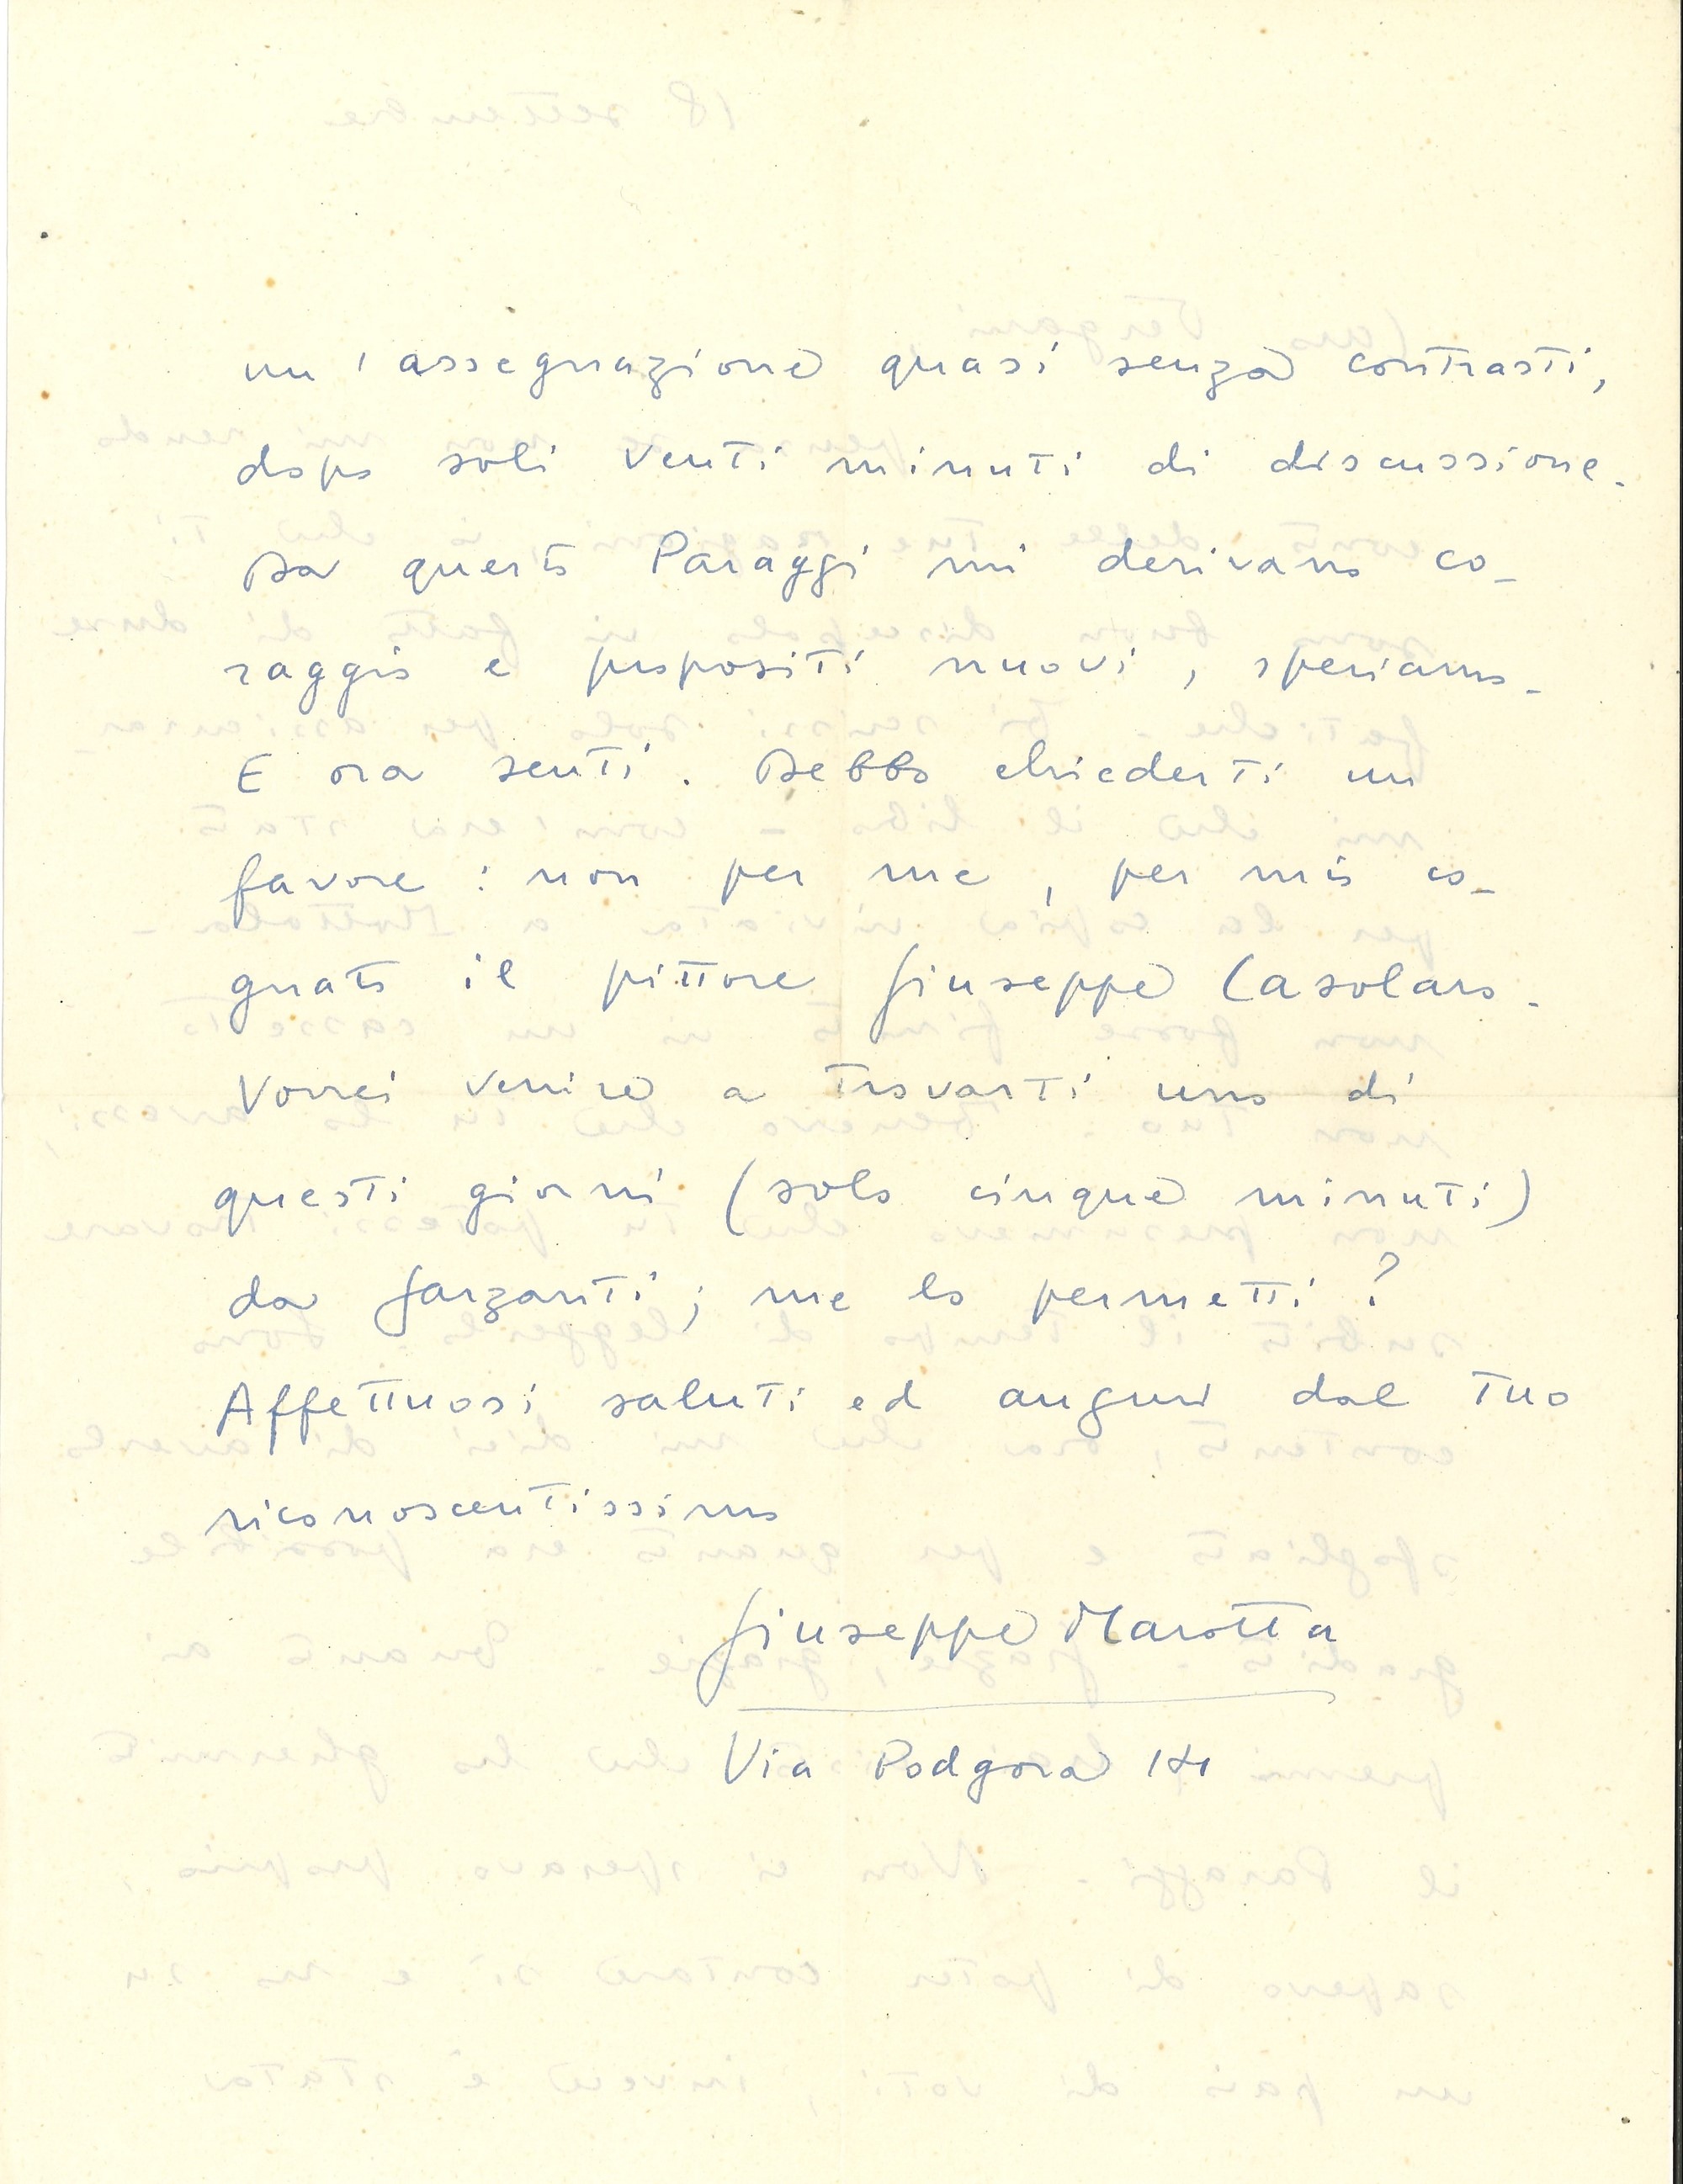 un'assegnazione quasi senza contrasti,
dopo soli venti minuti di discussione.
Da questo Paraggi mi derivano co-
raggio e propositi nuovi, speriamo.
E ora senti. Debbo chiederti un
favore: non per me, per mio co-
gnato il pittore Giuseppe Casolaro.
Vorrei venire a trovarti uno di
questi giorni (solo cinque minuti)
da Garzanti; me lo permetti?
Affettuosi saluti ed auguri dal tuo
riconoscentissimo
Giuseppe Marotta
Via Podgora